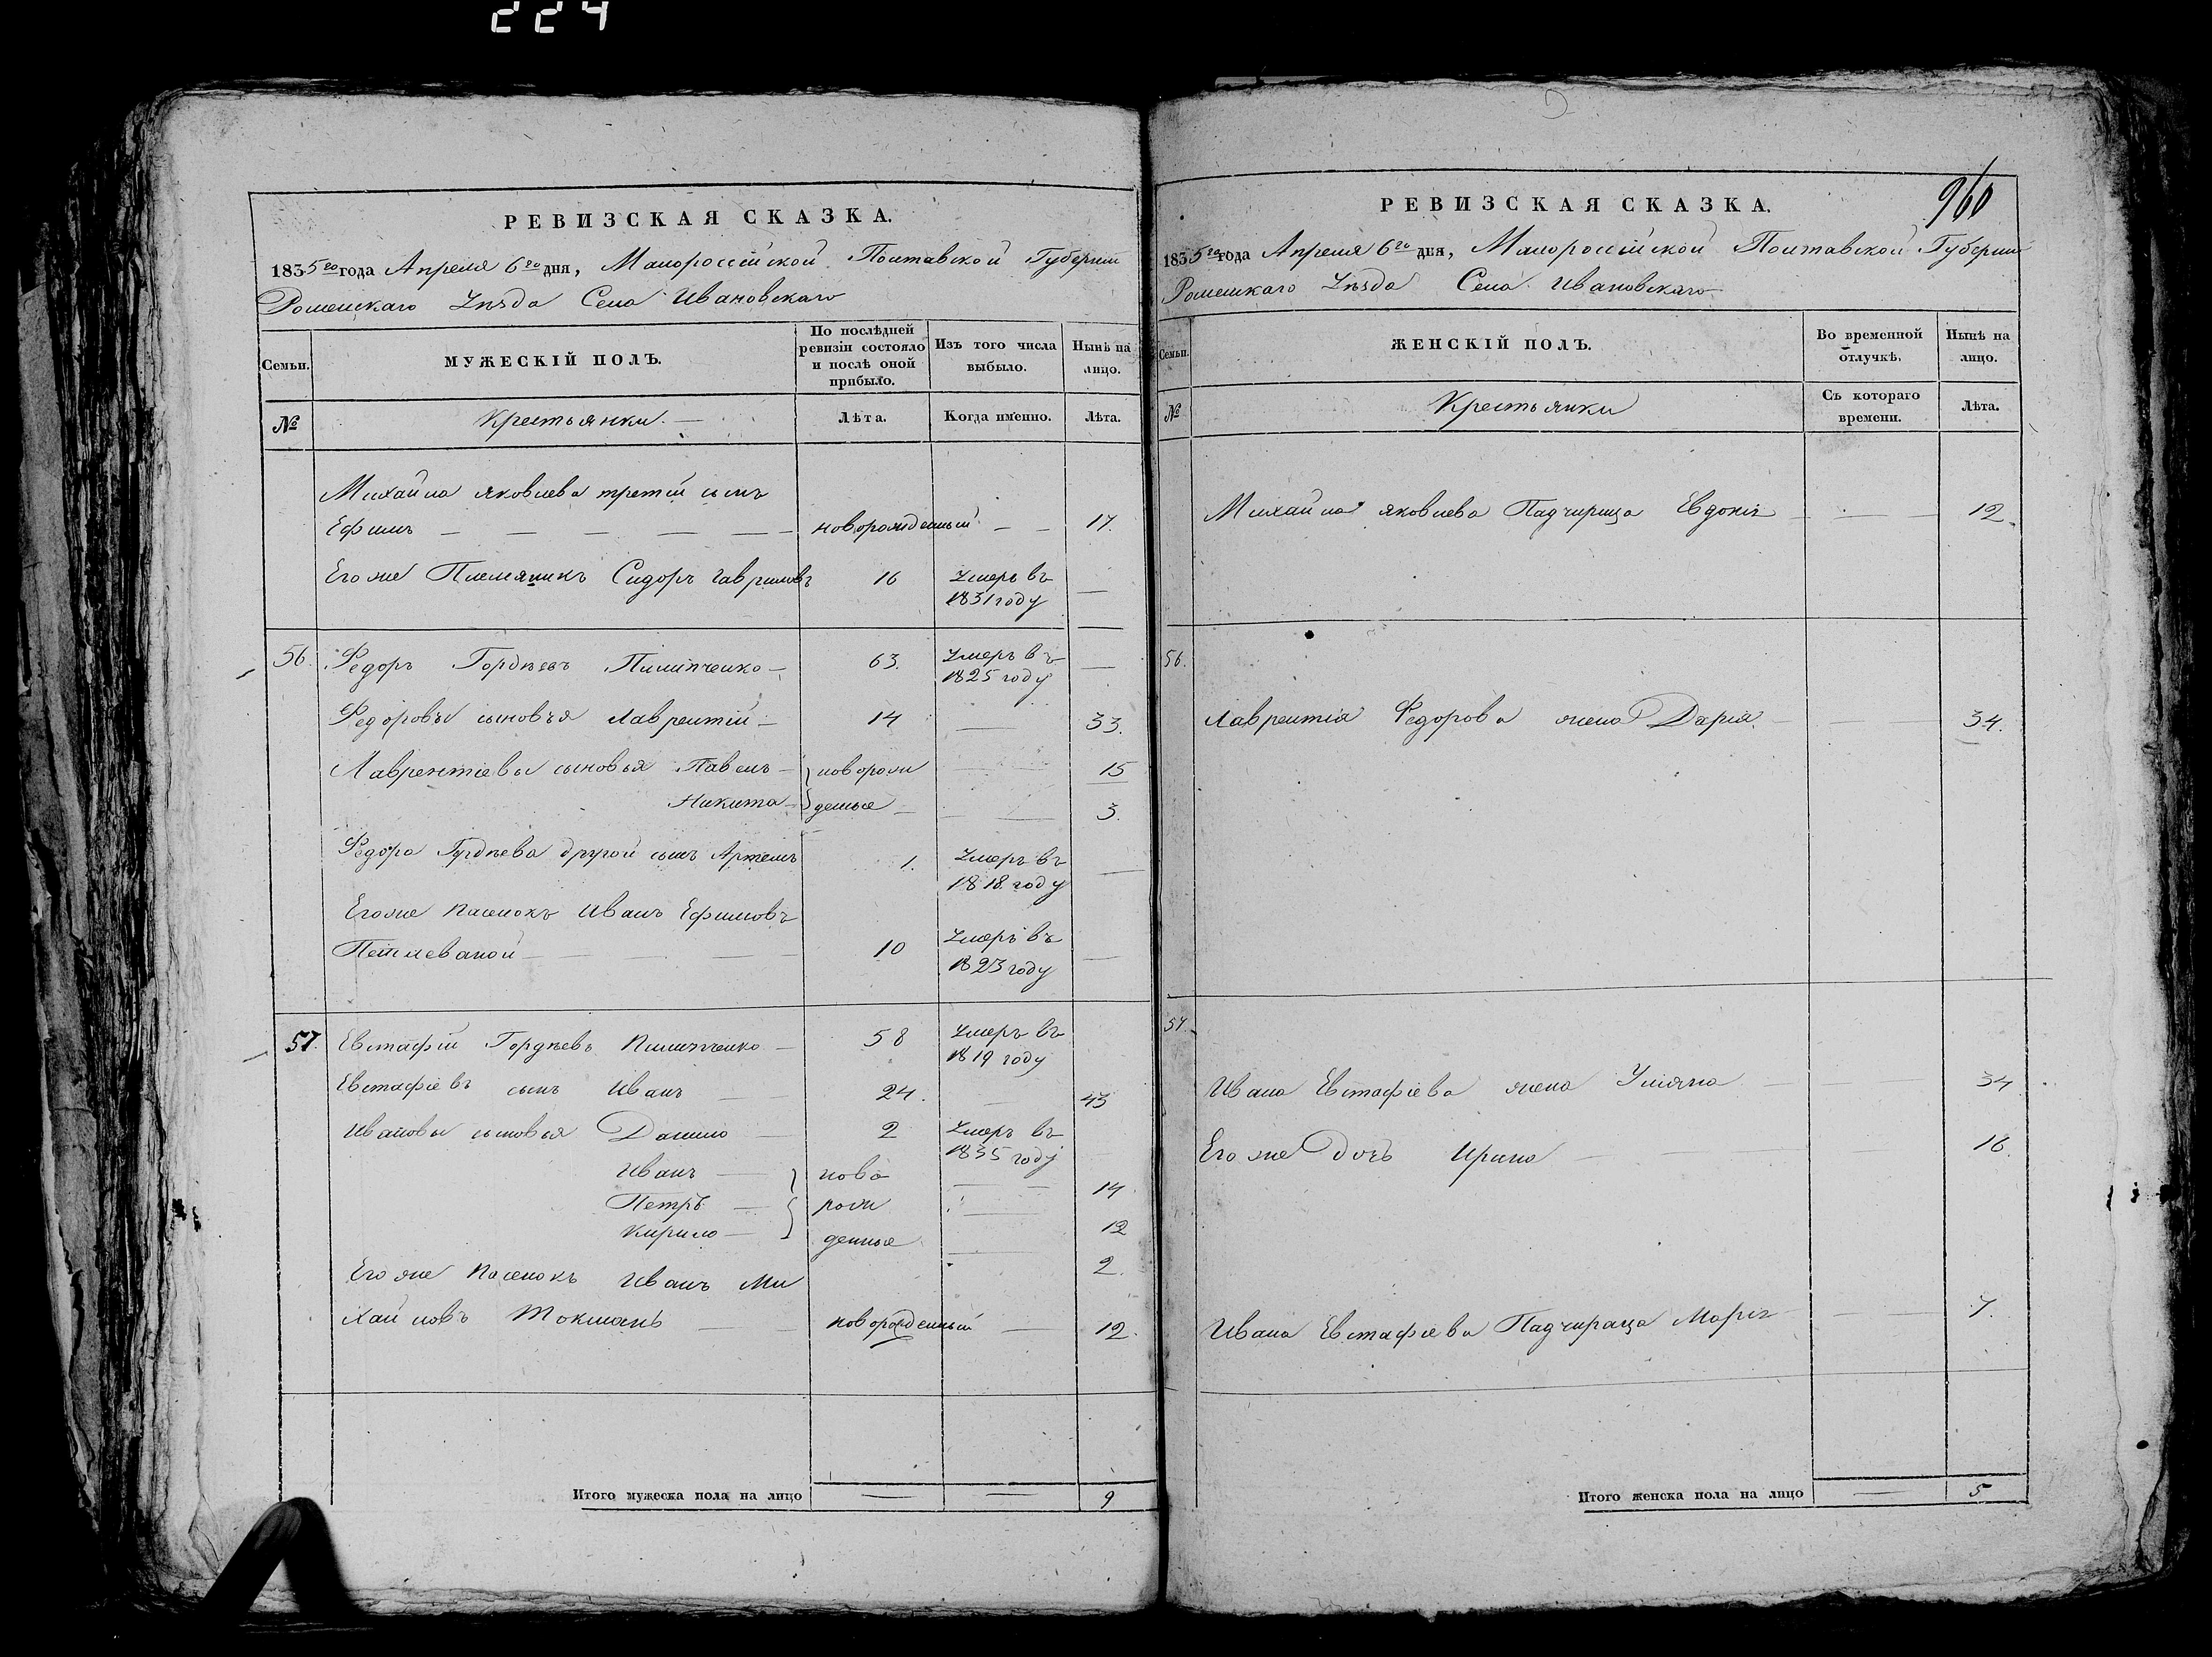 224
РЕВИЗСКАЯ СКАЗКА.
1835го года Апреля 6го дня, Малороссійской Полтавской Губерніи
Роменскаго Уѣзда Села Ивановскаго
Семьи.
МУЖЕСКІЙ ПОЛЪ.
По послѣдней ревизіи состояло и послѣ оной прибыло.
Изъ того числа выбыло.
Нынѣ на лицо.
№
Крестьянки
Лѣта.
Когда именно.
Лѣта.
Михайла Яковлева третій сынъ
Ефимъ новорожденный 17.
Его же Племяникъ Сидоръ Гавриловъ 16 Умеръ въ
1831 году
56. Федоръ Гордѣевъ Пилипченко 63. Умеръ въ
1825 году
Федоровы сыновья Лаврентій 14 33.
Лаврентіевы сыновья Павелъ новорож 15
Никита денные 3.
Федора Гурдѣева другой сынъ Артемъ 1. Умеръ въ
1818 году
Его же пасенокъ Иванъ Ефимовъ
10 Умеръ въ
1823 году
57. Евстафій Гордѣевъ Пилипченко 58 Умеръ въ
1819 году
Евстафіевъ сынъ Иванъ 24. 43
Ивановы сыновья Данило 2 Умеръ въ
1835 году
Иванъ ново 14
Петръ рож 12
Кирило денные 2.
Его же пасенокъ Иванъ Ми
хайловъ Токмань новорожденный 12.
Итого мужеска пола на лицо 9
960
РЕВИЗСКАЯ СКАЗКА.
1835го года Апреля 6го дня, Малороссійской Полтавской Губерніи
Роменскаго Уѣзда Села Ивановскаго
Семьи.
ЖЕНСКІЙ ПОЛЪ.
Во временной отлучкѣ.
Нынѣ на лицо.
№
Крестьянки
Съ котораго времени.
Лѣта.
Михайла Яковлева Падчирица Евдокія 12.
56.
Лаврентія Федорова жена Дарія 34.
57
Ивана Евстафіева жена Уліяна 34
Его же дочь Ирина 16.
Ивана Евстафіева Падчираца Марія 7.
Итого женска пола на лицо 5